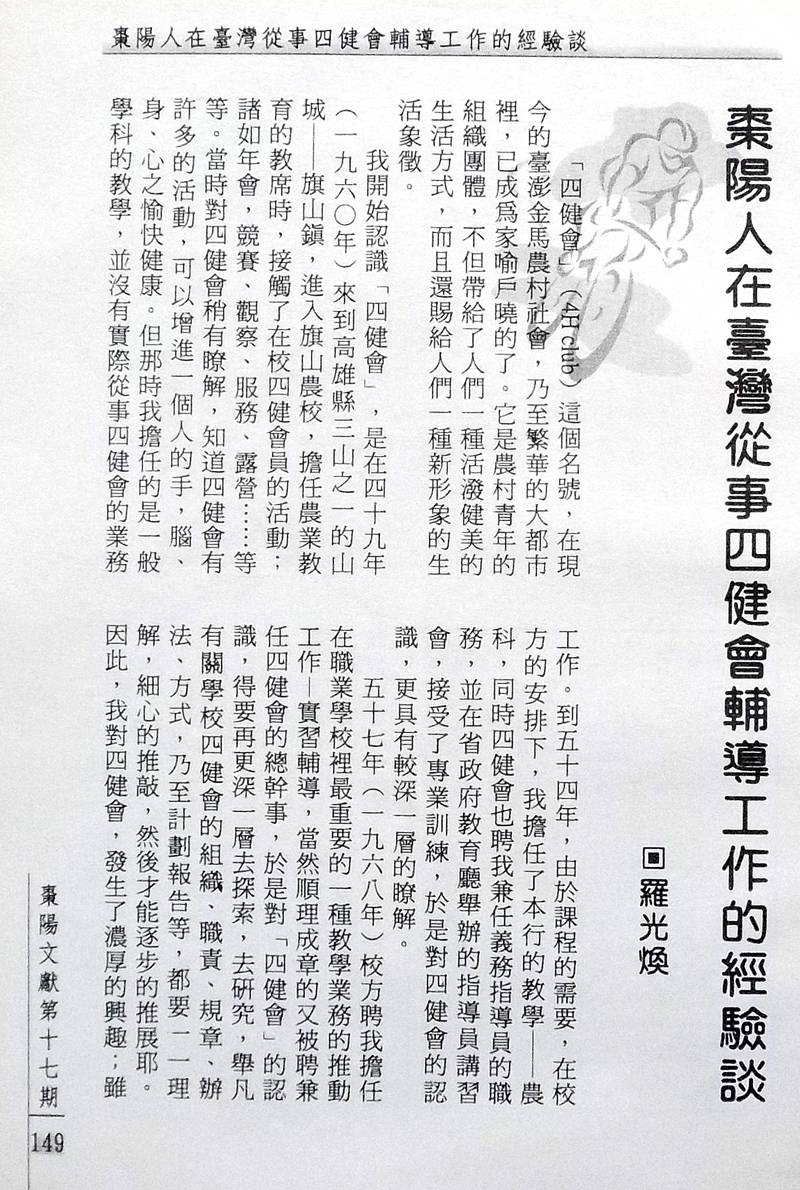 棗陽人在臺灣從事四健會輔導工作的經驗談
棗陽人在臺灣從事四健會輔導工作的經驗談
回羅光煥
「四健會」（4H club）這個名號，在現
今的臺澎金馬農村社會，乃至繁華的大都市
裡，已成爲家喻戶曉的了。它是農村青年的
組織團體，不但帶給了人們一種活潑健美的
生活方式，而且還賜給人們一種新形象的生
活象徵。
我開始認識「四健會」，是在四十九年
（一九六〇年）來到高雄縣三山之一的山
城——旗山鎮，進入旗山農校，擔任農業教
育的教席時，接觸了在校四健會員的活動；
諸如年會，競賽、觀察、服務、露營……等
等。當時對四健會稍有瞭解，知道四健會有
許多的活動，可以增進一個人的手，腦、
身、心之愉快健康。但那時我擔任的是一般
學科的教學，並沒有實際從事四健會的業務
工作。到五十四年，由於課程的需要，在校
方的安排下，我擔任了本行的教學——農
科，同時四健會也聘我兼任義務指導員的職
務，並在省政府教育廳舉辦的指導員講習
會，接受了專業訓練，於是對四健會的認
識，更具有較深一層的瞭解。
五十七年（一九六八年）校方聘我擔任
在職業學校裡最重要的一種教學業務的推動
工作—實習輔導，當然順理成章的又被聘兼
任四健會的總幹事，於是對「四健會」的認
識，得要再更深一層去探索，去研究，舉凡
有關學校四健會的組織、職責、規章、辦
法、方式，乃至計劃報告等，都要一一理
解，細心的推敲，然後才能逐步的推展耶。
因此，我對四健會，發生了濃厚的興趣；雖
棗陽文獻第十七期
149